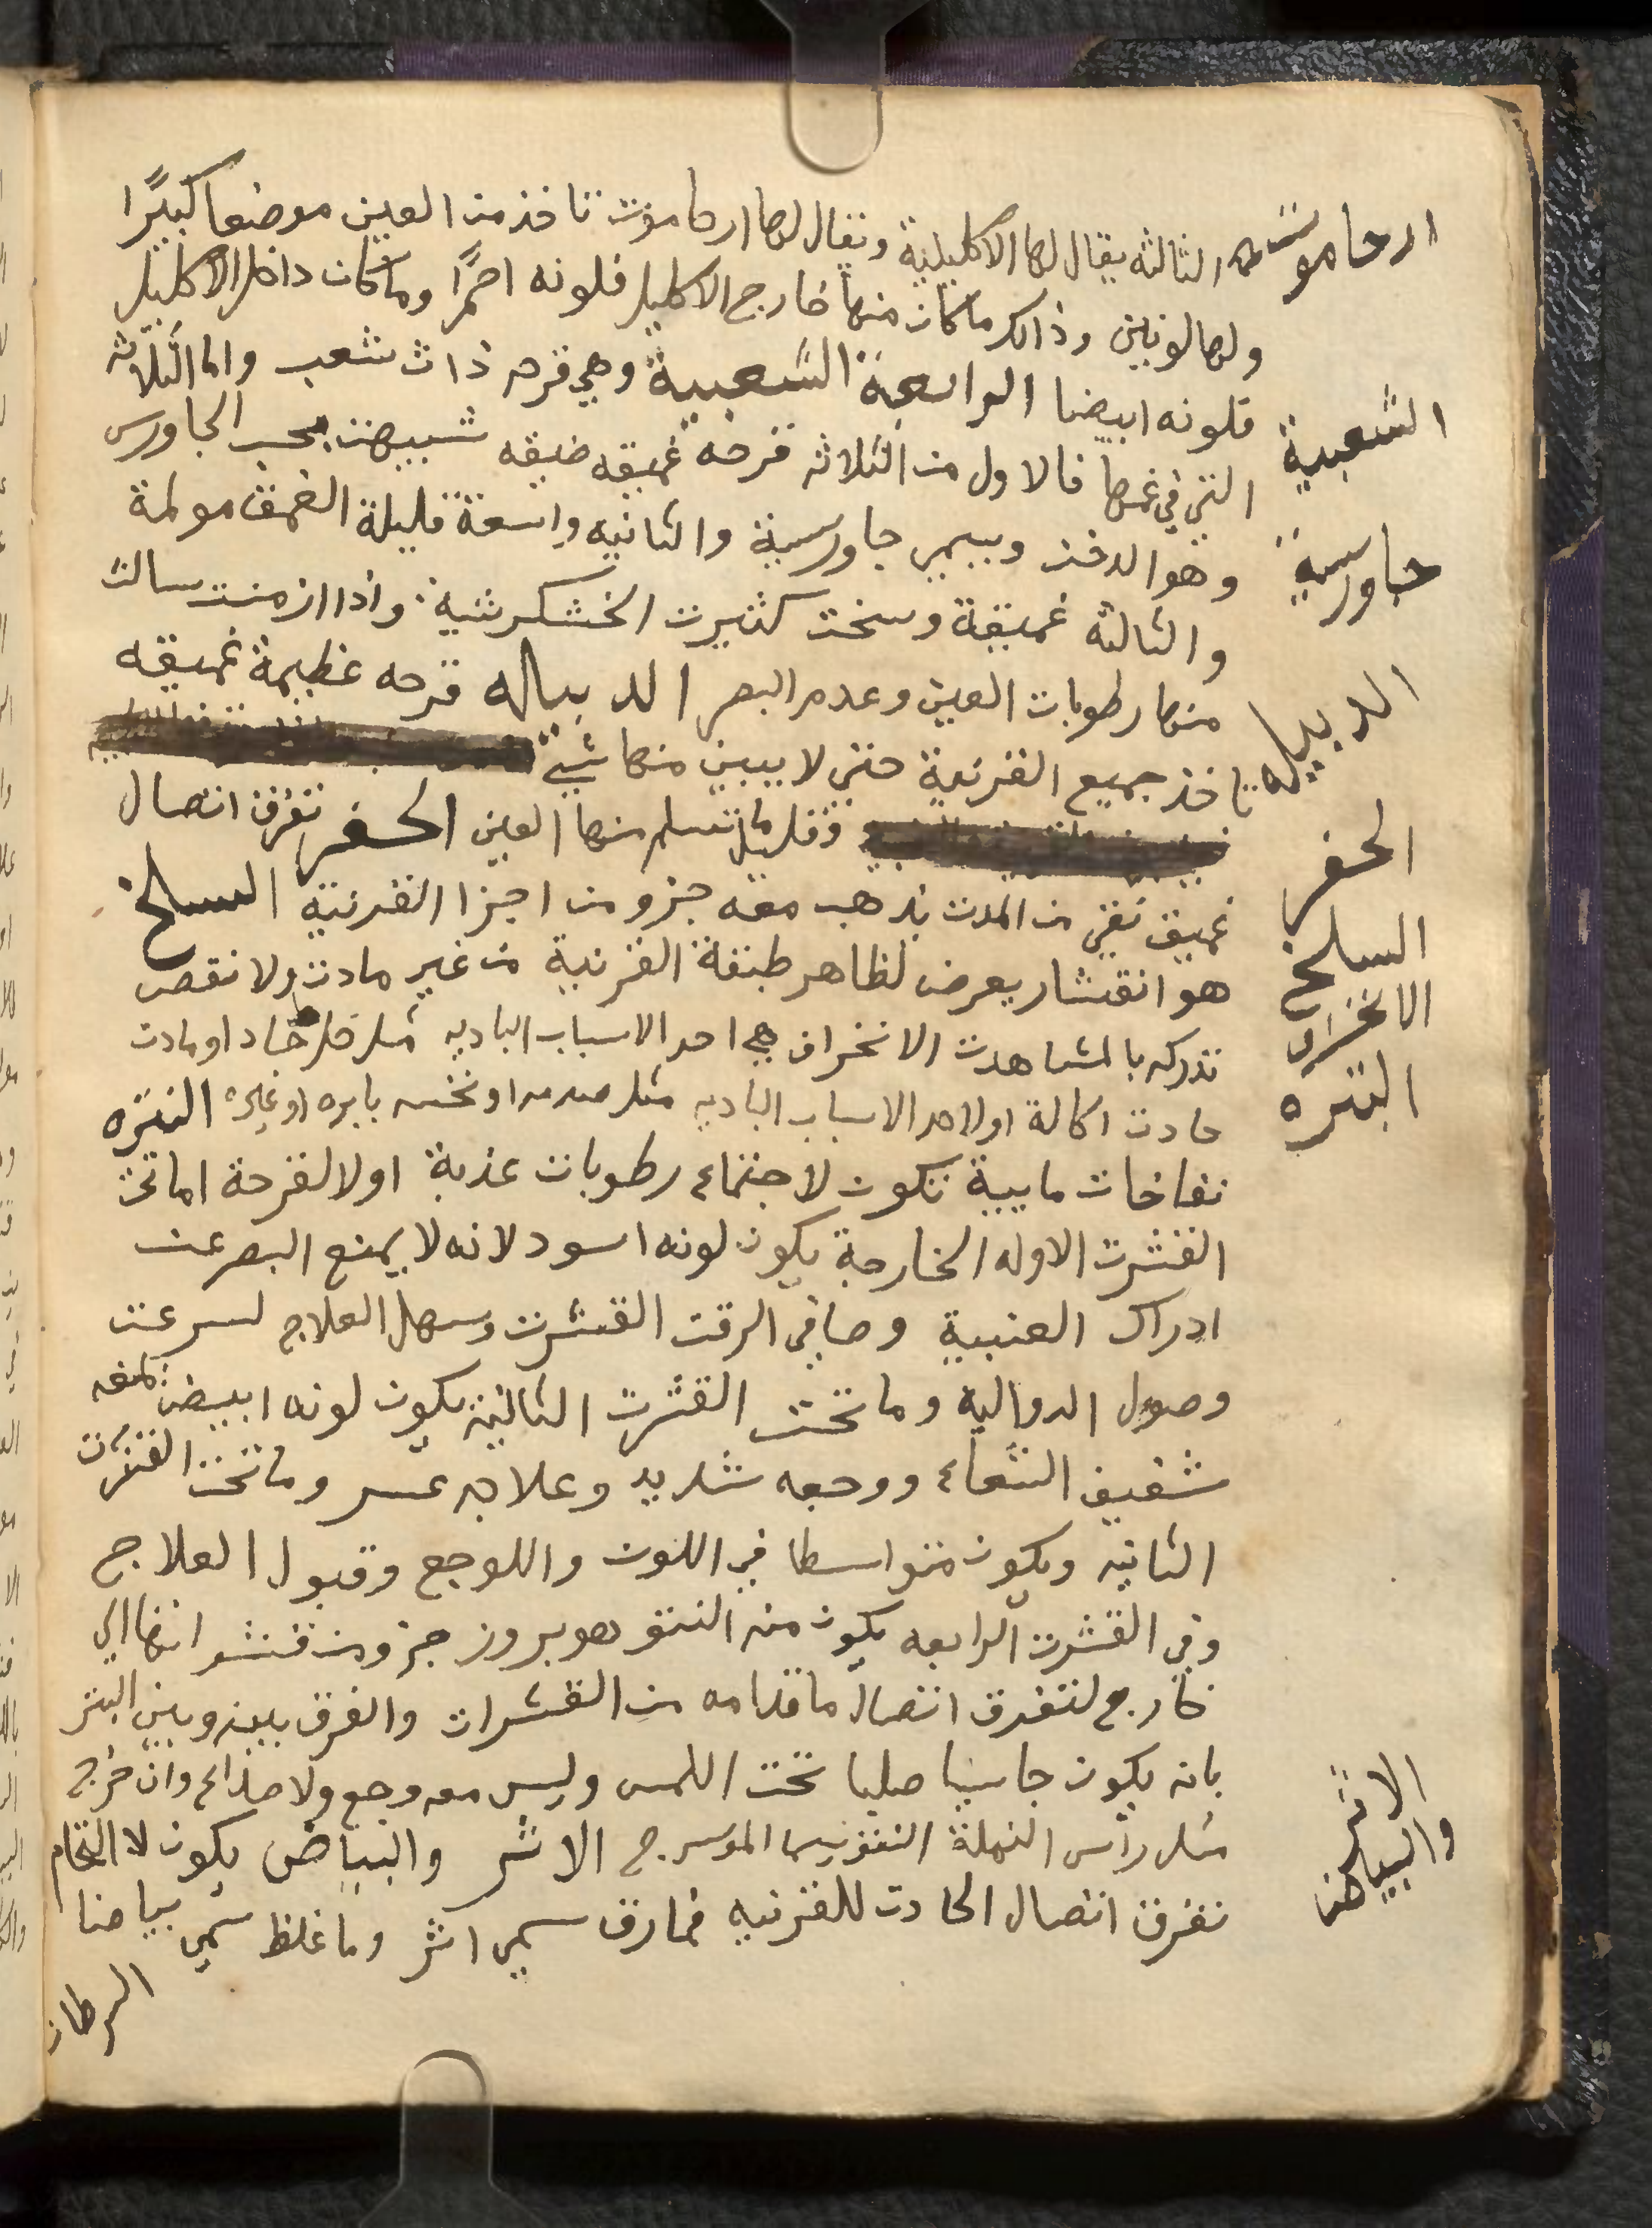 ارحاموست الثالثه يقال لها الاكليلية ويقال لها ارحاموت تاخذ من العين موضعا كبيرًا
ولها لونين وذالك ما كان منها خارج الاكليل فلونه احمرًا وما كان داخل الاكليل
الشعبية
فلونه ابيضا الرابعة الشعبية وهي قرحه ذات شعب واما الثلاثه
التي في غمها فالاول من الثلاثه قرحه غميقه ضيقه شبيهت بحب الجاورس
جاورسية
وهو الدخن ويسمى جاورسية والثانيه واسعة قليلة الغمق مولمة
والثالثه غميقة وسخت كثيرت الخشكريشية واذا ازمنت سالت
الدبيله
منها رطوبات العين وعدم البصر الدبياله قرحه عظيمة غميقه
تاخذ جميع القرنية حتى لا يبين منها شيئ
الحفر
وقليل ما تسلم منها العين الحفر تفرق اتصال
غميق نقي من المدت يذهب معه جزو من اجزا القرنية السلخ
السلخ
هو انقشار يعرض لظاهر طبقة القرنية من غير مادت ولا نقص
الانخراق
تدركه بالمشاهدت الانخراق هي احد الاسباب الباديه مثل خل حاد او مادت
البثره
حادت اكالة او لاحد الاسباب الباديه مثل صدمه او نخسه بابره او غيره البثره
نفاخات مايية تكون لاجتماع رطوبات عذبة اولا لقرحة اما تحت
القشرت الاوله الخارجة يكون لونه اسود لانه لا يمنع البصر عن
ادراك العنبية وصافي الرقت القشرت وسهل العلاج لسرعت
وصول الدواليه وما تحت القشرت الثالثة يكون لونه ابيض لمنعه
شفيف الشعاع ووجعه شديد وعلاجه عسر وما تحت القشرت
الثانيه ويكون متواسطا في اللون واللوجع وقبول العلاج
وفي القشرت الرابعه يكون منه النتو هو بروز جزو من قشو انها الي
خارج لتفرق اتصال ما قدامه من القشرات والفرق بينه وبين البثر
بانه يكون جاسيا صلبا تحت اللمس وليس معه وجع ولا صداع وان خرج
الاثر
والبياض
مثل رأس النملة النتو يسما الموسرج الاثر والبياض يكون لا التحام
تفرق اتصال الحادت للقرنيه فما رق سمي اثر وما غلظ سمي بياضا
السرطان